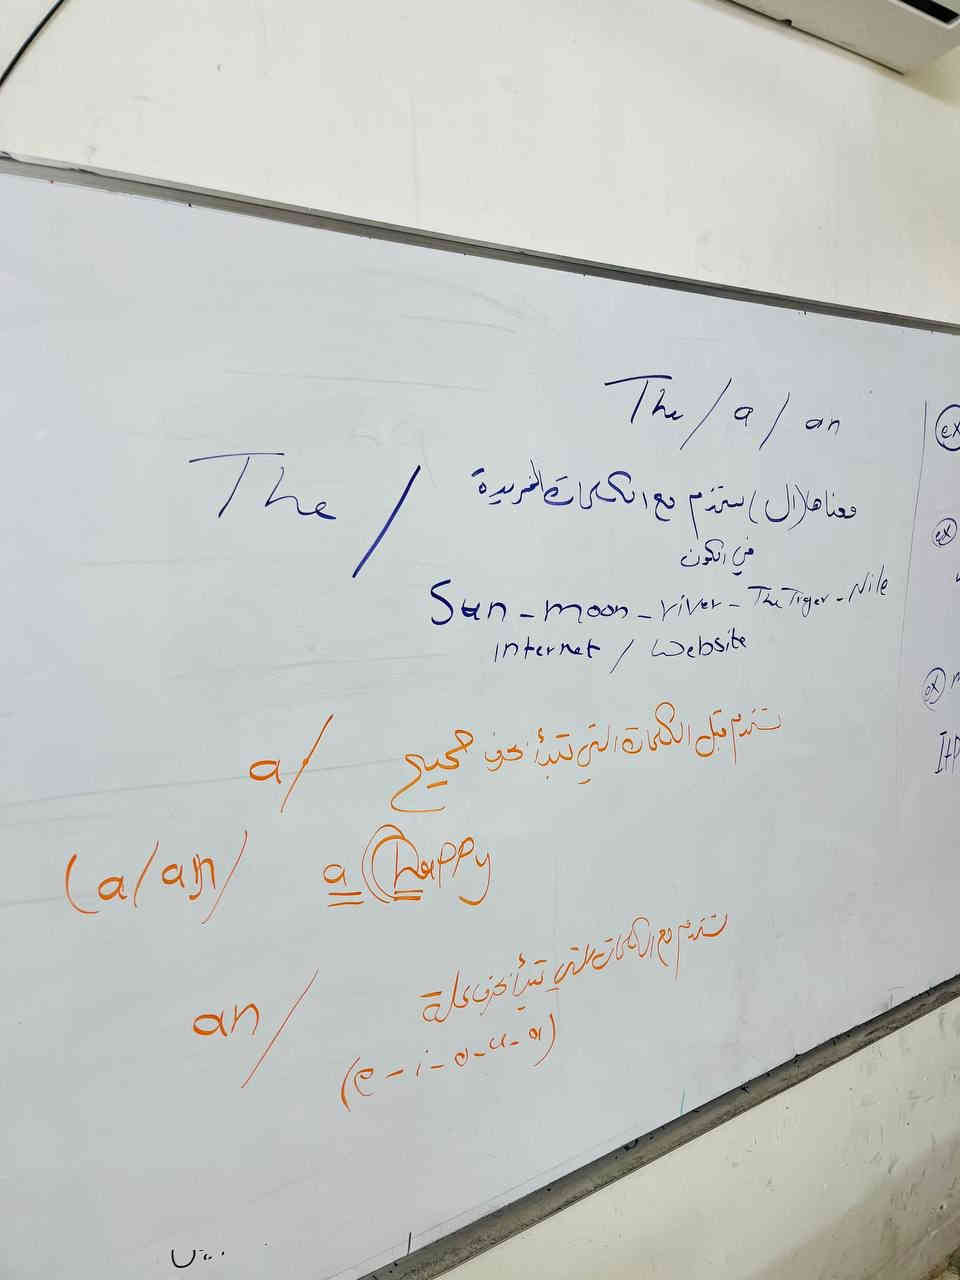 The / a / an
The / معناها (ال) ستخدم مع الكلمات الفريدة
في الكون
Sun - moon - river - The Tiger - Nile
internet / website
a/ تستخدم قبل الكلمات التي تبدأ بحرف صحيح
(a/an) a happy
an/ تستخدم مع الكلمات التي تبدأ بحرف علة
(e - i - o - u - a)
ex
ex
ex